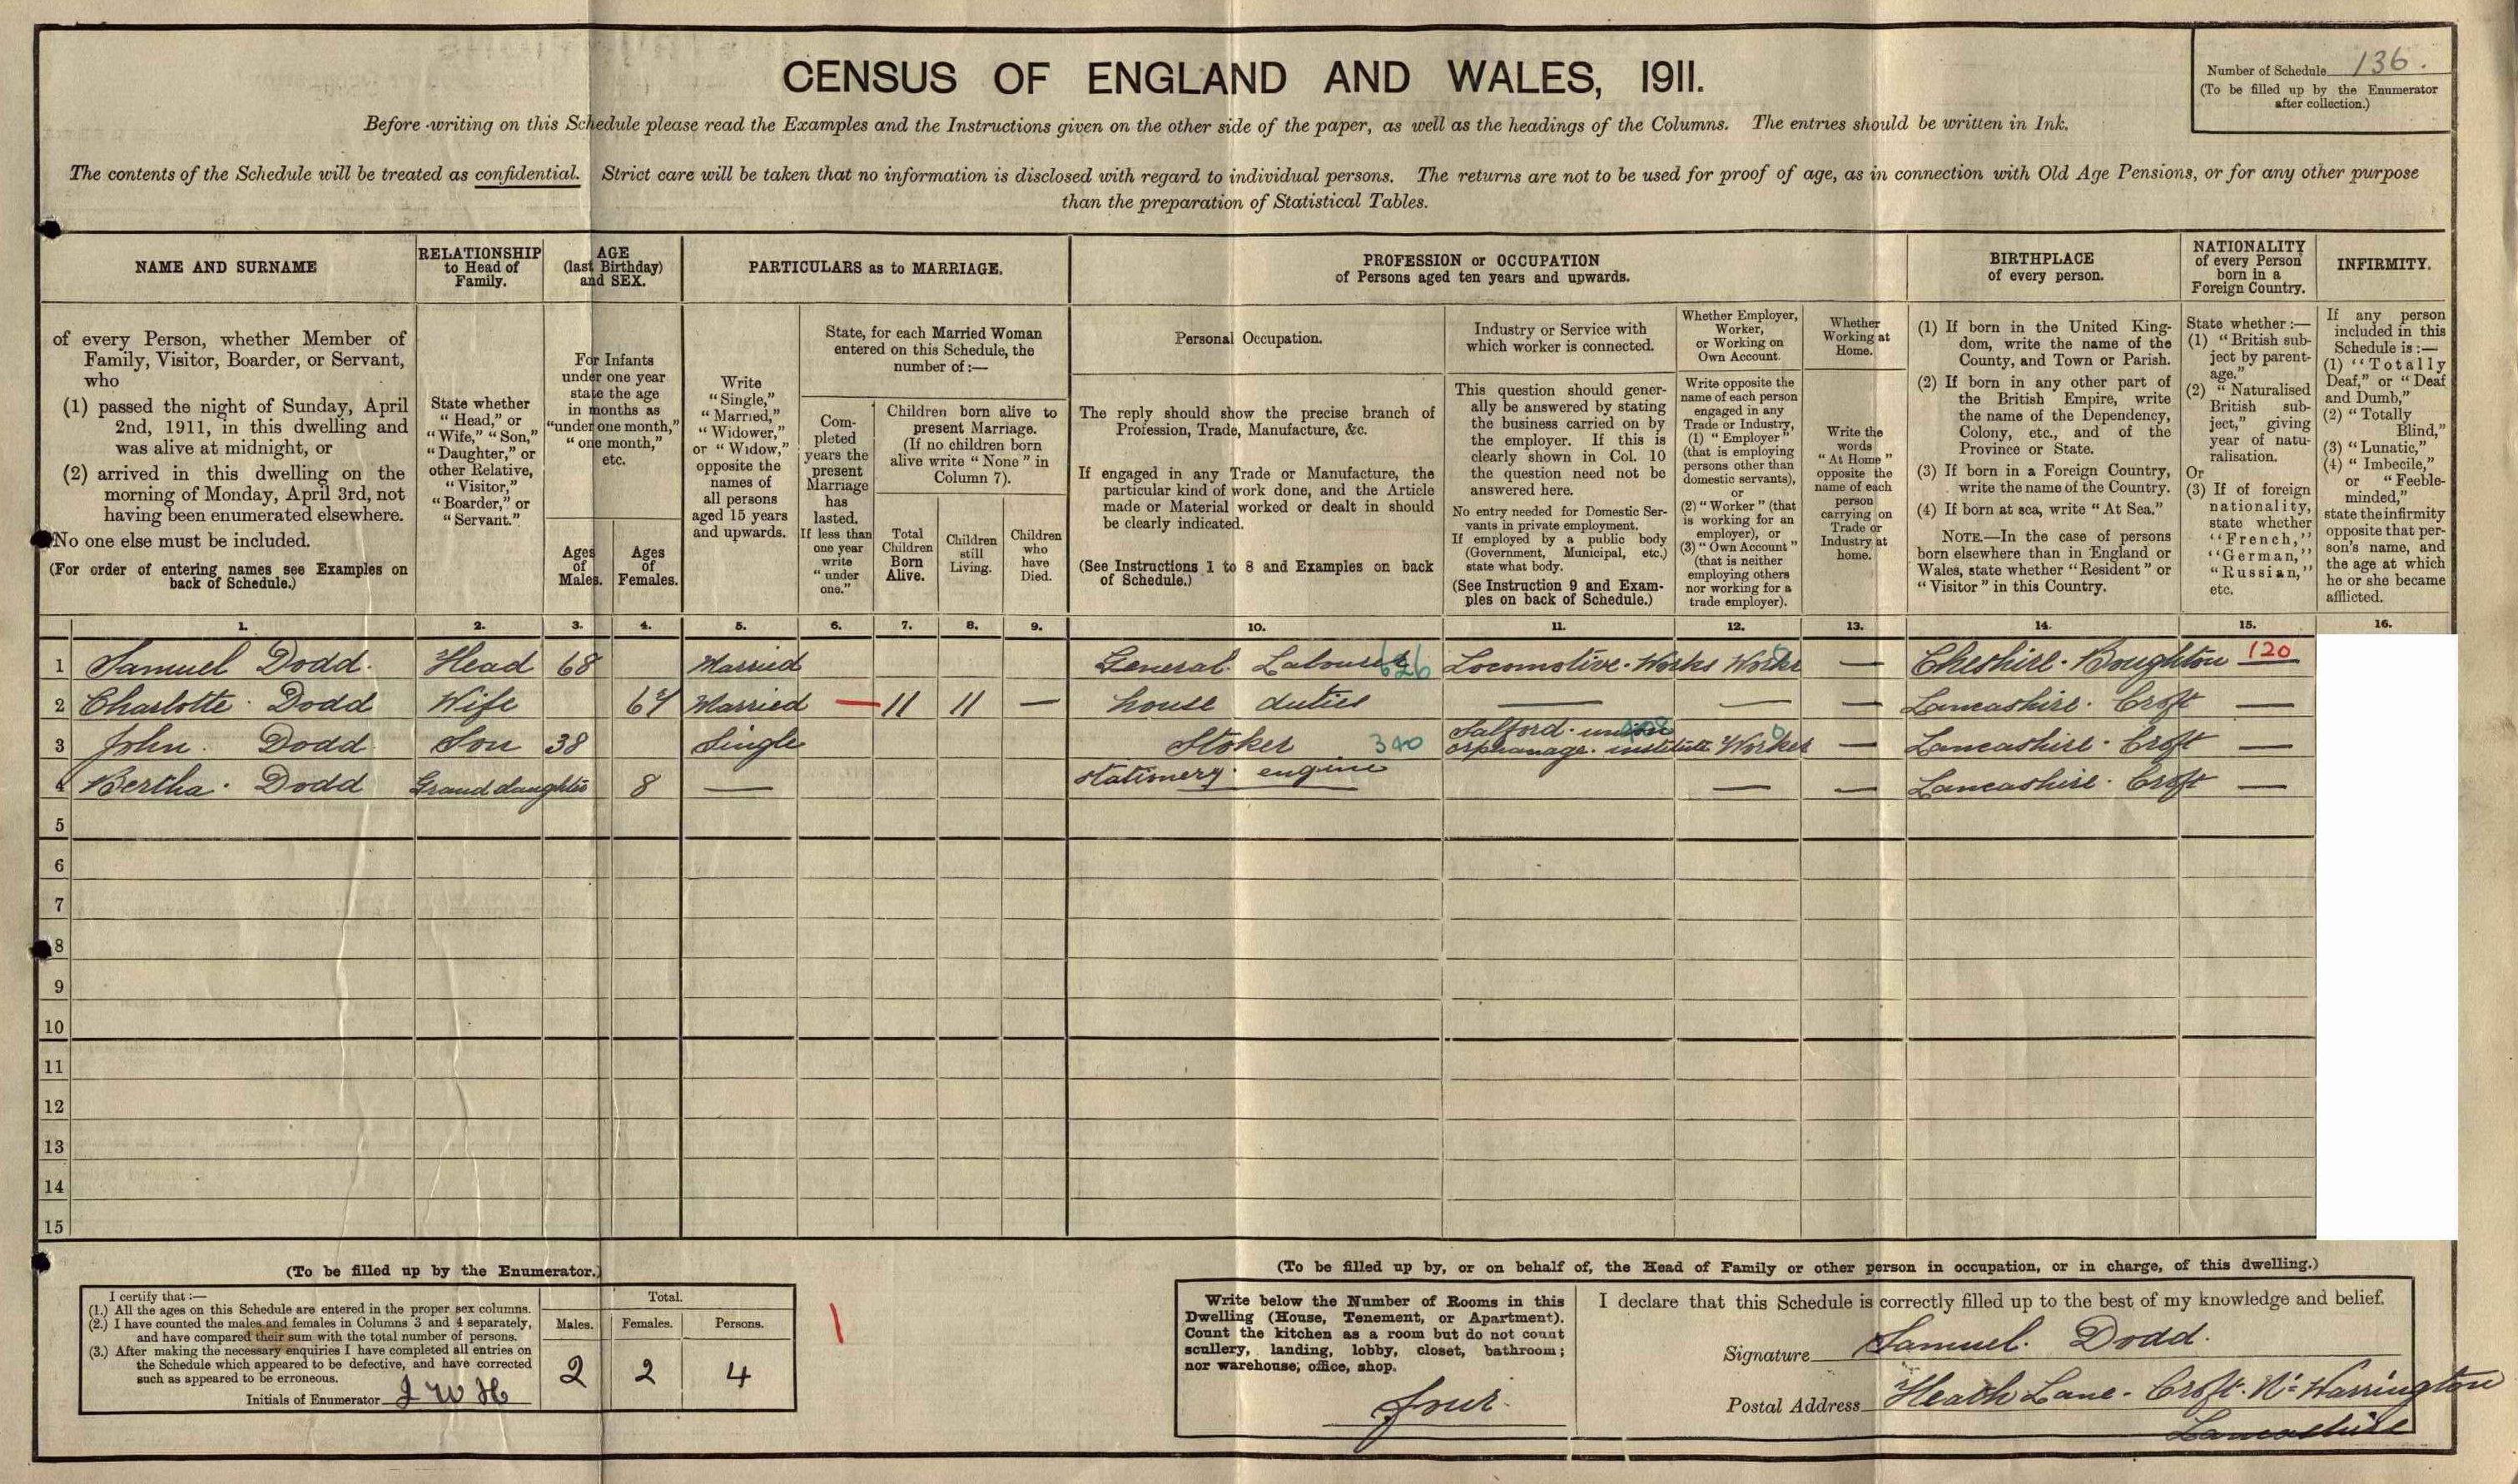 CENSUS OF ENGLAND AND WALES, 1911.
Number of Schedule 136.
(To be filled up by the Enumerator
after collection.)
Before writing on this Schedule please read the Examples and the Instructions given on the other side of the paper, as well as the headings of the Columns. The entries should be written in Ink.
The contents of the Schedule will be treated as confidential. Strict care will be taken that no information is disclosed with regard to individual persons. The returns are not to be used for proof of age, as in connection with Old Age Pensions, or for any other purpose
than the preparation of Statistical Tables.
NAME AND SURNAME
of every Person, whether Member of
Family, Visitor, Boarder, or Servant,
who
(1) passed the night of Sunday, April
2nd, 1911, in this dwelling and
was alive at midnight, or
(2) arrived in this dwelling on the
morning of Monday, April 3rd, not
having been enumerated elsewhere.
No one else must be included.
(For order of entering names see Examples on
back of Schedule.)
RELATIONSHIP
to Head of
Family.
State whether
"Head," or
"Wife," "Son,"
"Daughter," or
other Relative,
"Visitor,"
"Boarder," or
"Servant."
AGE
(last Birthday)
and SEX.
For Infants
under one year
state the age
in months as
"under one month,"
"one month,"
etc.
Ages
of
Males.
Ages
of
Females.
PARTICULARS as to MARRIAGE.
Write
"Single,"
"Married,"
"Widower,"
or "Widow,"
opposite the
names of
all persons
aged 15 years
and upwards.
State, for each Married Woman
entered on this Schedule, the
number of:—
Com-
pleted
years the
present
Marriage
has
lasted.
If less than
one year
write
"under
one."
Children born alive to
present Marriage.
(If no children born
alive write "None" in
Column 7).
Total
Children
Born
Alive.
Children
still
Living.
Children
who
have
Died.
PROFESSION or OCCUPATION
of Persons aged ten years and upwards.
Personal Occupation.
The reply should show the precise branch of
Profession, Trade, Manufacture, &c.
If engaged in any Trade or Manufacture, the
particular kind of work done, and the Article
made or Material worked or dealt in should
be clearly indicated.
(See Instructions 1 to 8 and Examples on back
of Schedule.)
Industry or Service with
which worker is connected.
This question should gener-
ally be answered by stating
the business carried on by
the employer. If this is
clearly shown in Col. 10
the question need not be
answered here.
No entry needed for Domestic Ser-
vants in private employment.
If employed by a public body
(Government, Municipal, etc.)
state what body.
(See Instruction 9 and Exam-
ples on back of Schedule.)
Whether Employer,
Worker,
or Working on
Own Account.
Write opposite the
name of each person
engaged in any
Trade or Industry,
(1) "Employer"
(that is employing
persons other than
domestic servants),
or
(2) "Worker" (that
is working for an
employer), or
(3) "Own Account"
(that is neither
employing others
nor working for a
trade employer).
Whether
Working at
Home.
Write the
words
"At Home"
opposite the
name of each
person
carrying on
Trade or
Industry at
home.
BIRTHPLACE
of every person.
(1) If born in the United King-
dom, write the name of the
County, and Town or Parish.
(2) If born in any other part of
the British Empire, write
the name of the Dependency,
Colony, etc., and of the
Province or State.
(3) If born in a Foreign Country,
write the name of the Country.
(4) If born at sea, write "At Sea."
NOTE.—In the case of persons
born elsewhere than in England or
Wales, state whether "Resident" or
"Visitor" in this Country.
NATIONALITY
of every Person
born in a
Foreign Country.
State whether:—
(1) "British sub-
ject by parent-
age."
(2) "Naturalised
British sub-
ject," giving
year of natu-
ralisation.
Or
(3) If of foreign
nationality,
state whether
"French,"
"German,"
"Russian,"
etc.
INFIRMITY.
If any person
included in this
Schedule is:—
(1) "Totally
Deaf," or "Deaf
and Dumb,"
(2) "Totally
Blind,"
(3) "Lunatic,"
(4) "Imbecile,"
or "Feeble-
minded,"
state the infirmity
opposite that per-
son's name, and
the age at which
he or she became
afflicted.
1. 2. 3. 4. 5. 6. 7. 8. 9. 10. 11. 12. 13. 14. 15. 16.
1 Samuel Dodd. Head 68 Married General Labourer 626 Locomotive. Works Worker — Cheshire. Boughton 120
2 Charlotte Dodd Wife Married — 11 11 — house duties — — — Lancashire. Croft —
3 John. Dodd Son 38 Single Stoker 340 Salford. union
orphanage. institute Worker — Lancashire. Croft —
stationery engine
4 Bertha. Dodd Grand daughter 8 — — — Lancashire. Croft —
5
6
7
8
9
10
11
12
13
14
15
(To be filled up by the Enumerator.)
I certify that:—
(1.) All the ages on this Schedule are entered in the proper sex columns.
(2.) I have counted the males and females in Columns 3 and 4 separately,
and have compared their sum with the total number of persons.
(3.) After making the necessary enquiries I have completed all entries on
the Schedule which appeared to be defective, and have corrected
such as appeared to be erroneous.
Initials of Enumerator J W H
Total.
Males. Females. Persons.
2 2 4
(To be filled up by, or on behalf of, the Head of Family or other person in occupation, or in charge, of this dwelling.)
Write below the Number of Rooms in this
Dwelling (House, Tenement, or Apartment).
Count the kitchen as a room but do not count
scullery, landing, lobby, closet, bathroom;
nor warehouse, office, shop.
four.
I declare that this Schedule is correctly filled up to the best of my knowledge and belief.
Signature Samuel. Dodd.
Postal Address Heath Lane. Croft. Nr Warrington
Lancashire